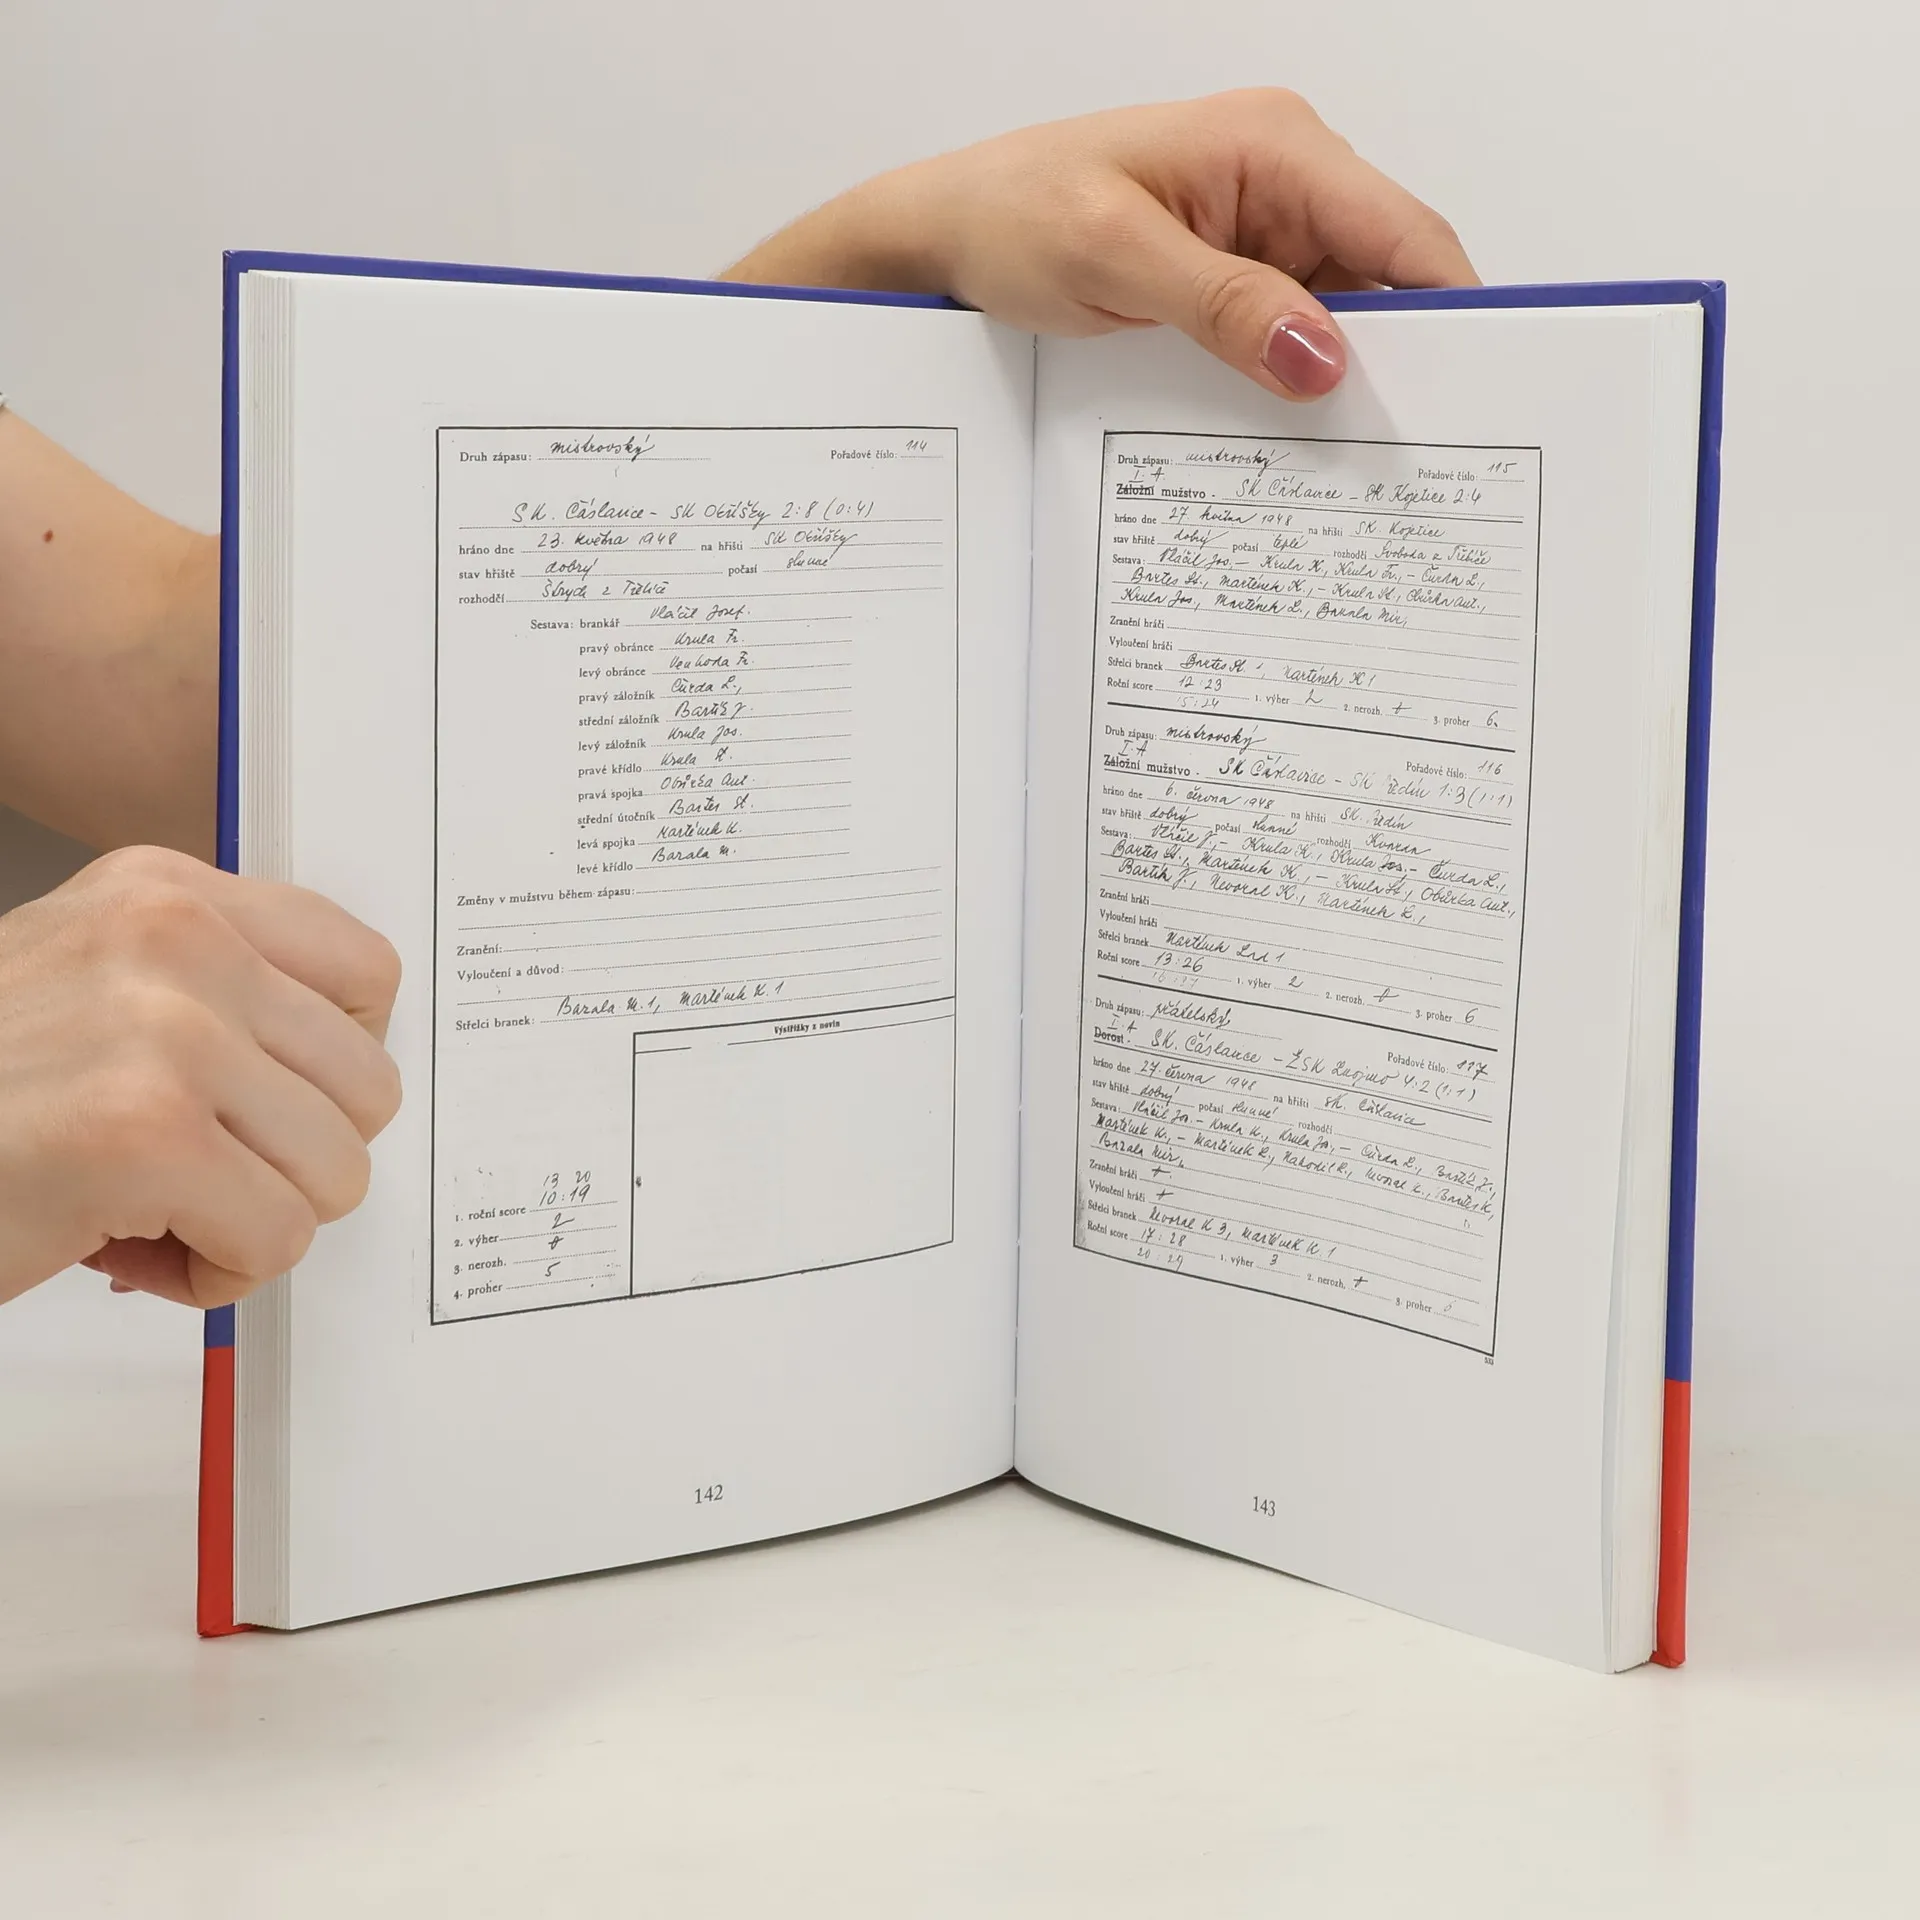 Druh zápasu: mistrovský Pořadové číslo: 114
SK. Čáslavice - SK Okříšky 2:8 (0:4)
hráno dne 23. května 1948 na hřišti SK Okříšky
stav hřiště dobrý počasí slunné
rozhodčí z Třebíče
Sestava: brankář Vláčil Josef.
pravý obránce Krula Fr.
levý obránce Venhoda Fr.
pravý záložník Čurda L.,
střední záložník Bartík J.
levý záložník Krula Jos.
pravé křídlo Krula St.
pravá spojka Obůrka Ant.
střední útočník Bartes St.
levá spojka Martének K.
levé křídlo Bazala M.
Změny v mužstvu během zápasu:
Zranění:
Vyloučení a důvod:
Střelci branek: Bazala M. 1, Martének K. 1
Výstřižky z novin
13 20
1. roční score 10:19
2. výher 2
3. nerozh. 0
4. proher 5
142
Druh zápasu: mistrovský Pořadové číslo: 115
I. A.
Záložní mužstvo - SK Čáslavice - SK Kojetice 2:4
hráno dne 27 května 1948 na hřišti SK. Kojetice
stav hřiště dobrý počasí teplé rozhodčí Svoboda z Třebíče
Sestava: Vláčil Jos, - Krula K., Krula Fr., - Čurda L.,
Bartes St., Martének K., - Krula St., Obůrka Ant.,
Krula Jos, Martének L., Bazala Mir,
Zranění hráči
Vyloučení hráči
Střelci branek Bartes St. 1, Martének K 1
Roční score 12:23 1. výher 2 2. nerozh. 3. proher 6.
15:24
Druh zápasu: mistrovský Pořadové číslo: 116
I. A
Záložní mužstvo - SK Čáslavice - SK 1:3 (1:1)
hráno dne 6. června 1948 na hřišti SK.
stav hřiště dobrý počasí slunné rozhodčí
Sestava: Vláčil J, - Krula K., Krula Jos, - Čurda L.,
Bartes St., Martének K., - Krula St., Obůrka Ant.,
Bartík J., Nevoral K., Martének L.,
Zranění hráči
Vyloučení hráči
Střelci branek Martének 1
Roční score 13:26 1. výher 2 2. nerozh. 3. proher 6
Druh zápasu: přátelský Pořadové číslo: 117
I. A
Dorost - SK. Čáslavice - ŽSK Znojmo 4:2 (1:1)
hráno dne 27. června 1948 na hřišti SK. Čáslavice
stav hřiště dobrý počasí slunné rozhodčí
Sestava: Vláčil Jos. - Krula K., Krula Jos, - Čurda L., Bartík J.,
Martének K., - Martének L., Nahodil R., Nevoral K., Bartes K,
Bazala Mir,
Zranění hráči
Vyloučení hráči
Střelci branek Nevoral K 3, Martének K. 1
Roční score 17:28 1. výher 3 2. nerozh. 3. proher 6
20:29
533
143